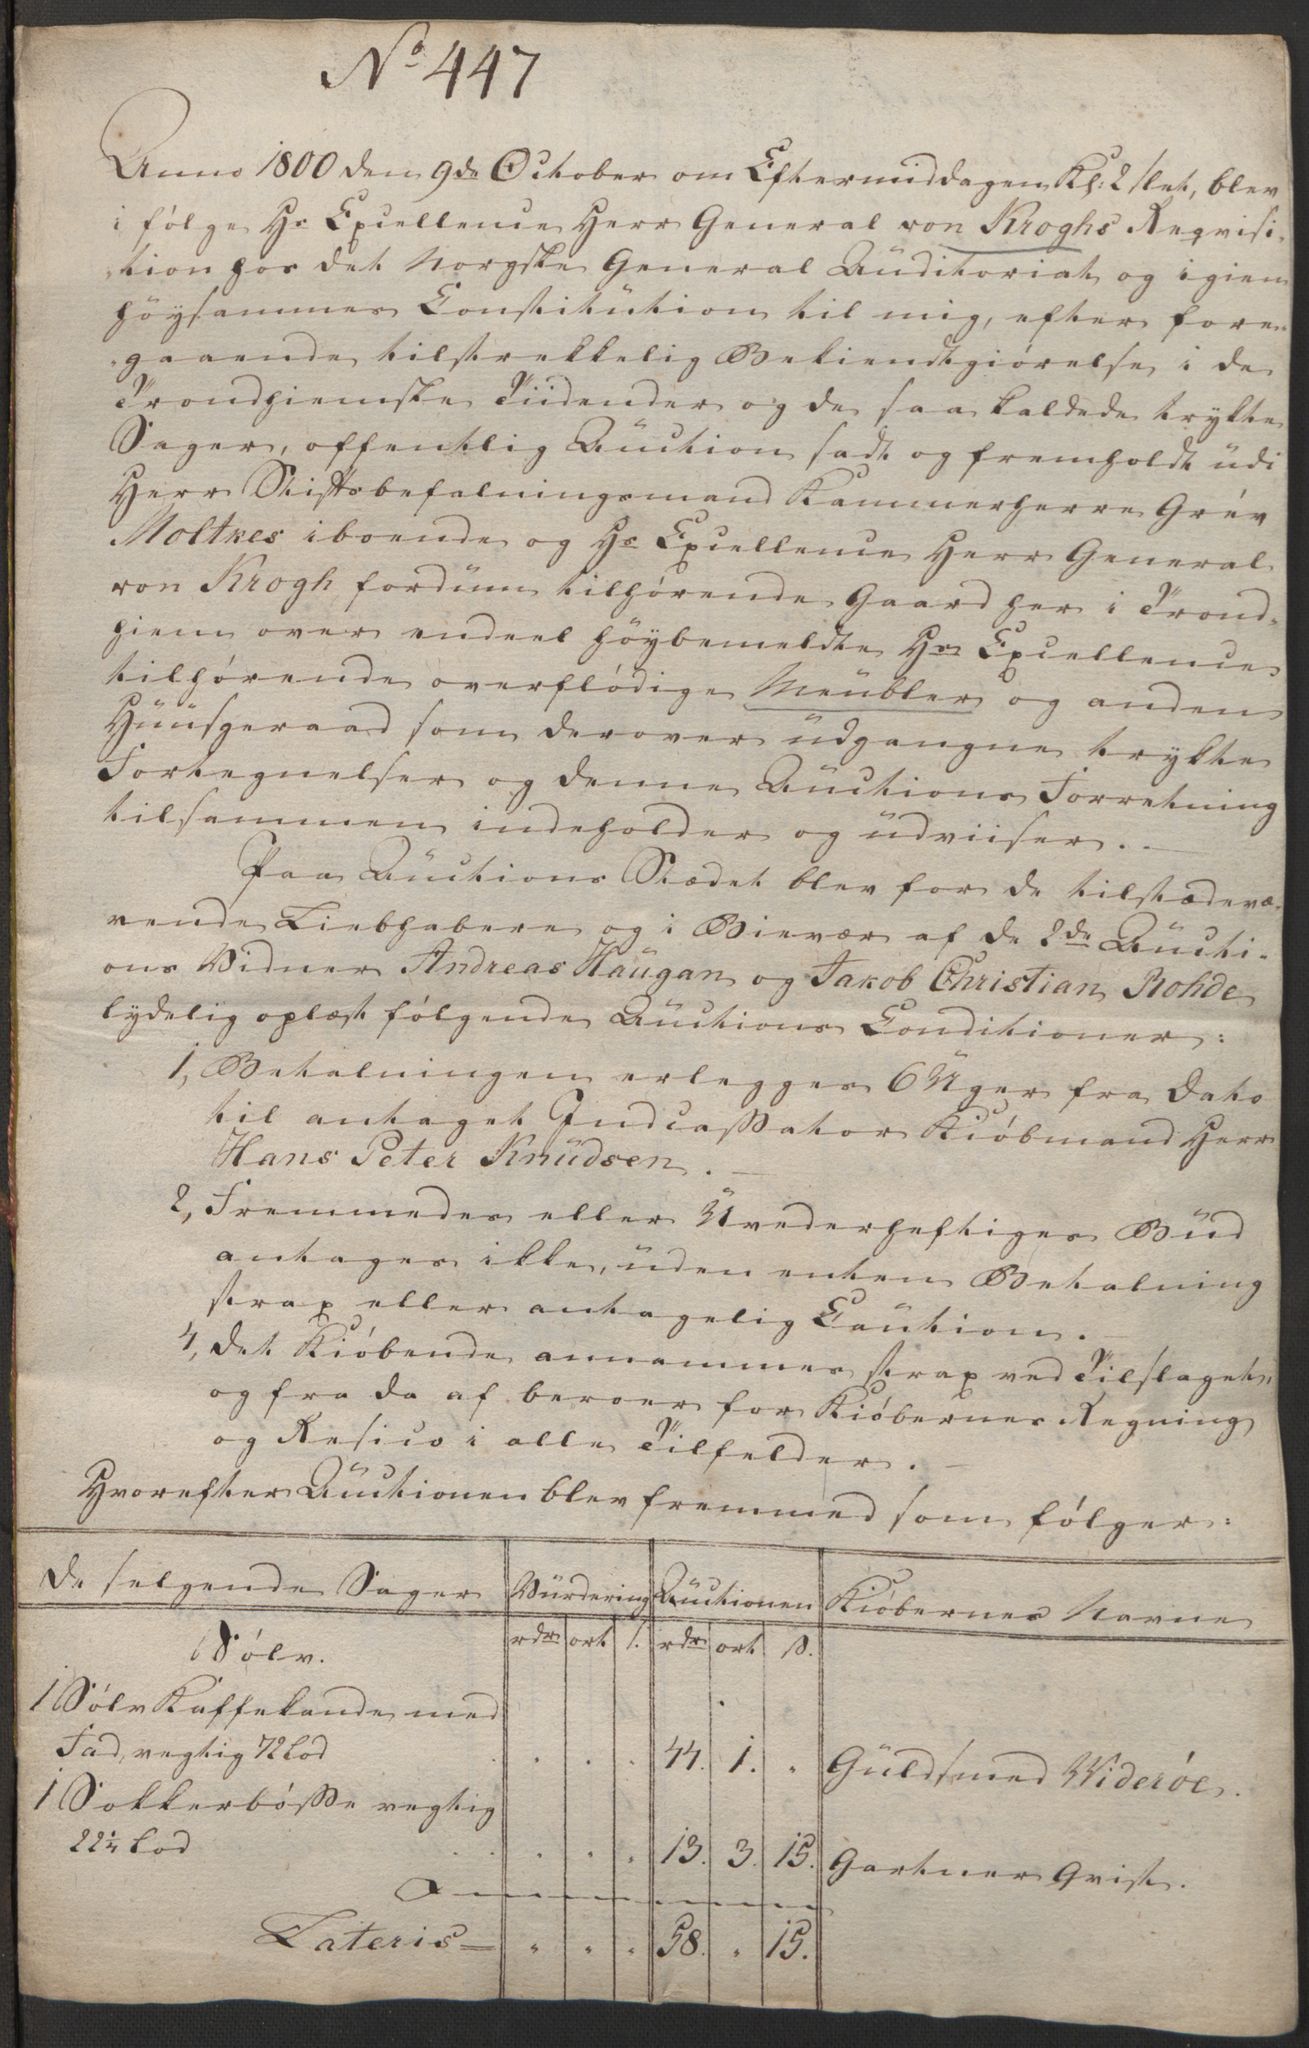 No 447
Anno 1800 den 9de October om Eftermiddagen Kl: 2 slet, blev
i følge Hs Excellence Herr General von Kroghs Reqvisi-
tion hos det Norgske General Auditoriat og igiem
høysammes Constitution til mig, efter fore-
gaaende tilstrekkelig Bekiendtgiørelse i de
Trondhiemske Tiidender og de saa kaldede trykte
Sager, offentlig Auction sadt og fremholdt udi
Herr Stiftsbefalningsmand Kammerherre Grev
Moltkes iboende og Hs Excellence Herr General
von Krogh fordum tilhørende Gaard her i Trond-
hiem over endeel høybemeldte Hs Excellence
tilhørende overflødige Meubler og anden
Huusgeraad som derover udgangne trykte
Fortegnelser og denne Auctions Forretning
tilsammen indeholder og udviiser.
Paa Auctions Stædet blev for de tilstædevæ-
rende Liebhabere og i Bievær af de 2de Aucti-
ons Vidner Andreas Haugan og Jakob Christian Rohde
lydelig oplæst følgende Auctions Conditioner:
1, Betalningen erlegges 6 Uger fra Dato
til antaget Indcassator Kiøbmand Herr
Hans Peter Knudsen.
2, Fremmedes eller Uvederheftiges Bud
antages ikke, uden enten Betalning
strax eller antagelig Caution.
4, Det Kiøbende annammes strax ved Tilslaget,
og fra da af beroer for Kiøbernes Regning
og Resico i alle Tilfelder.
Hvorefter Auctionen blev fremmed som følger:
De selgende Sager Vurdering Auctionen Kiøbernes Navne
rdr ort s. rdr ort s.
Sølv.
1 Sølv Kaffekande med
Fad, vegtig 72 Lod 44. 1. " Guldsmed Widerøe.
1 Sokkerbøsse vegtig
22¼ Lod 13. 3. 15. Gartner Qvist.
Lateris " " " 58. " 15.